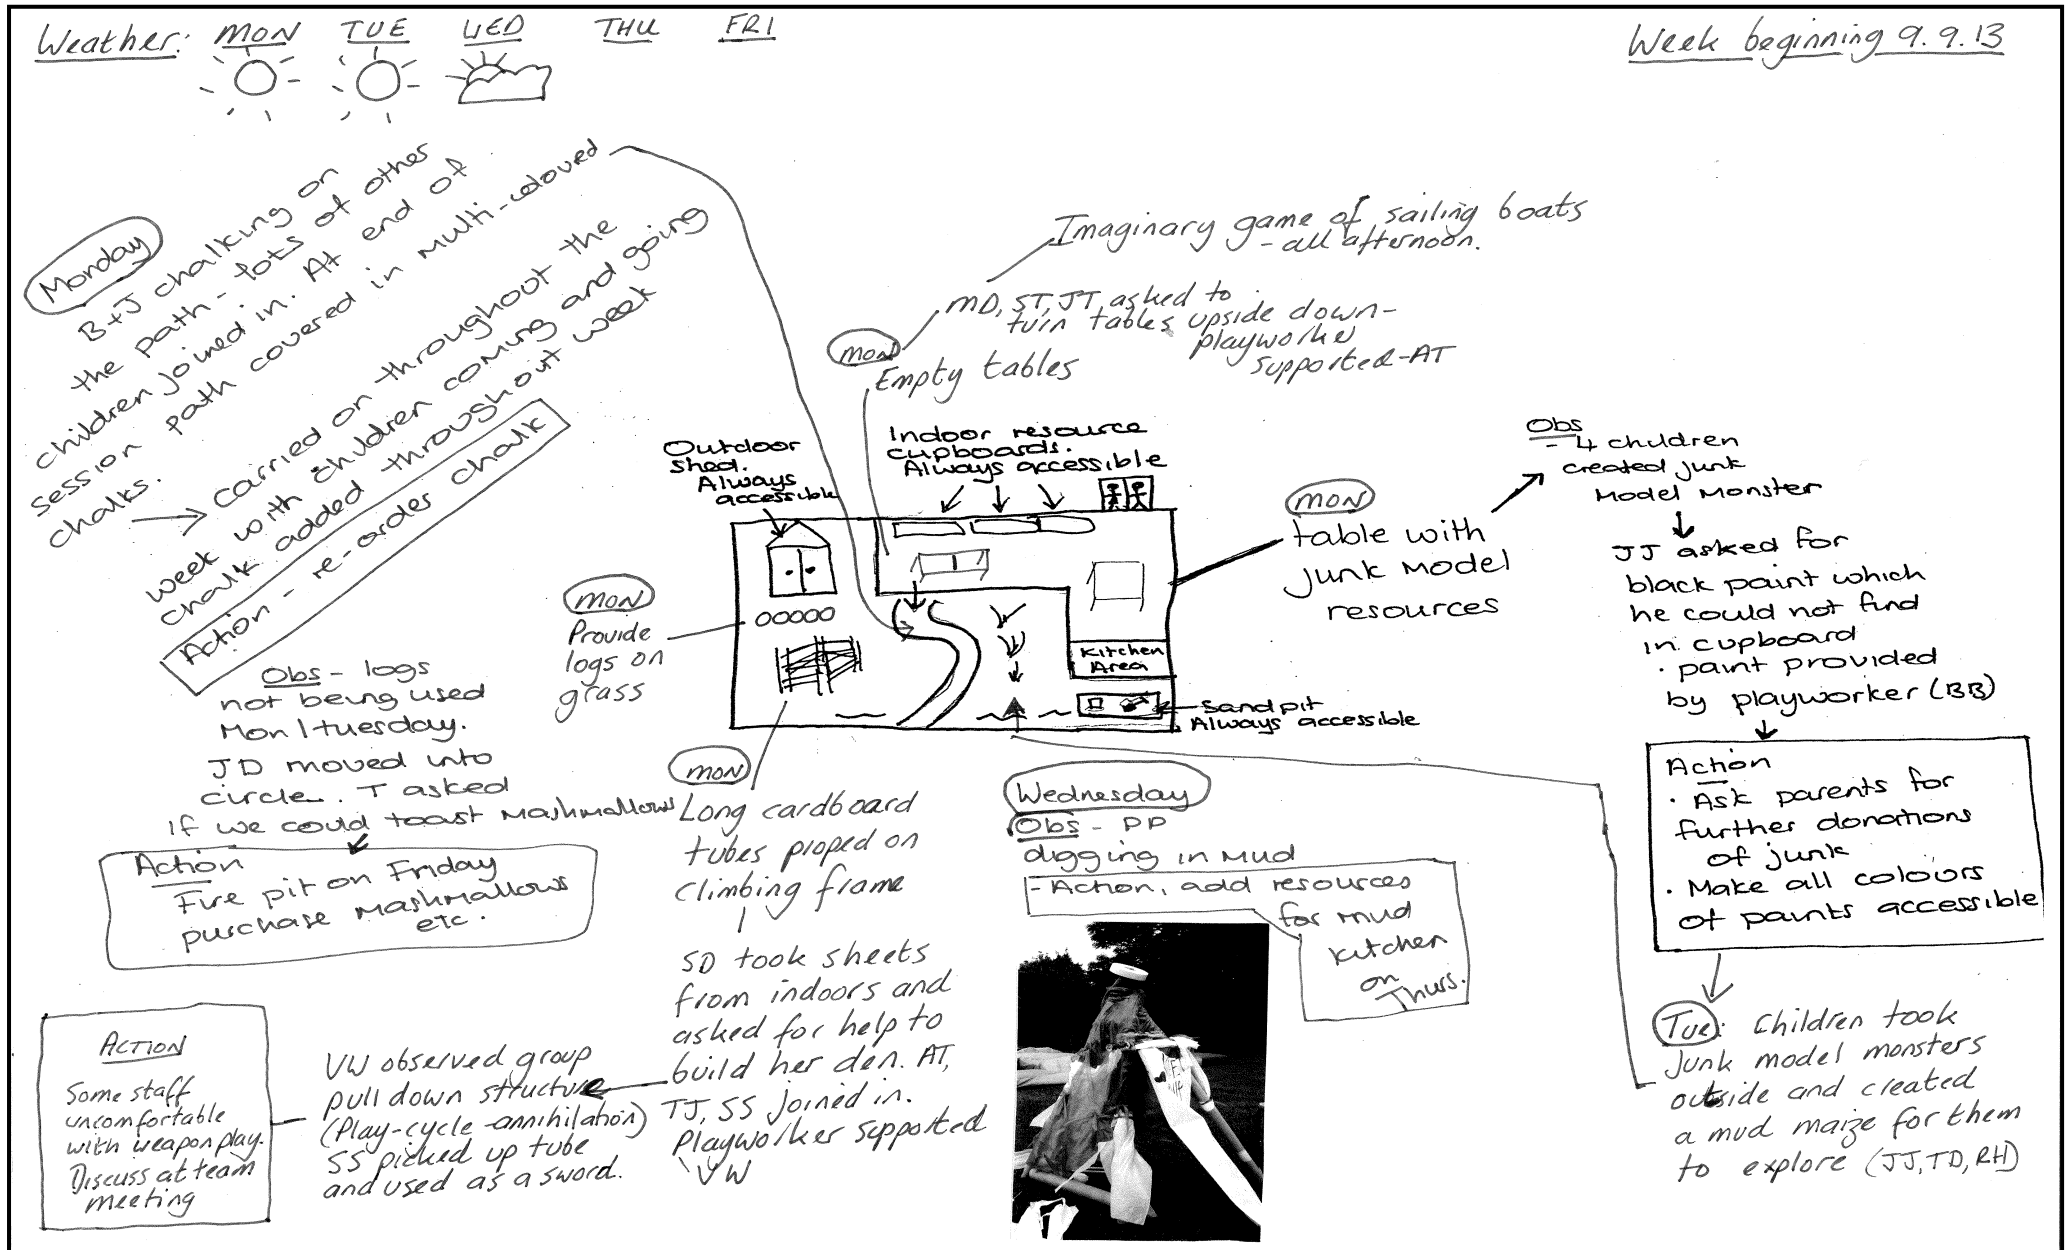 Weather: MON TUE WED THU FRI
Week beginning 9.9.13
Monday
B+J chalking on
the path - lots of other
children joined in. At end of
session path covered in multi-coloured
chalks.
→ Carried on throughout the
week with children coming and going
chalk added throughout week
Action - re-order chalk
Imaginary game of sailing boats
- all afternoon.
MD, ST, JT, asked to
turn tables upside down-
playworker
supported-AT
MON
Empty tables
Outdoor
shed.
Always
accessible
Indoor resource
cupboards.
Always accessible
Kitchen
Area
Sandpit
Always accessible
MON
table with
junk model
resources
Obs
- 4 children
created junk
model monster
JJ asked for
black paint which
he could not find
in cupboard
· paint provided
by playworker (BB)
Action
· Ask parents for
further donations
of junk
· Make all colours
of paints accessible
Tue: Children took
junk model monsters
outside and created
a mud maize for them
to explore (JJ, TD, RH)
MON
Provide
logs on
grass
Obs - logs
not being used
Mon/tuesday.
JD moved into
circle. T asked
if we could toast mashmallows
Action
Fire pit on Friday
purchase mashmallows
etc.
MON
Long cardboard
tubes proped on
climbing frame
SD took sheets
from indoors and
asked for help to
build her den. AT,
TJ, SS joined in.
Playworker supported
VW
VW observed group
pull down structure
(Play-cycle-annihilation)
SS picked up tube
and used as a sword.
ACTION
Some staff
uncomfortable
with weapon play.
Discuss at team
meeting
Wednesday
Obs - PP
digging in mud
- Action, add resources
for mud
kitchen
on
Thurs.